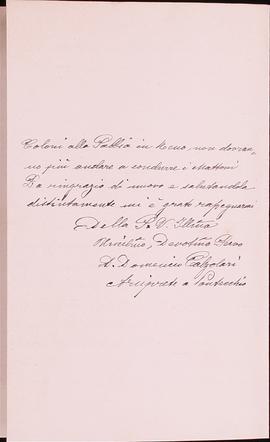 Coloni alla Pabbia in Reno non dovran-
no più andare a condurre i Mattoni
La ringrazio di nuovo e salutandola
distintamente mi è grato rassegnarmi
Della S. V. Illma
Umilmo, Devotmo Servo
D. Domenico Calzolari
Arciprete a Pontecchio